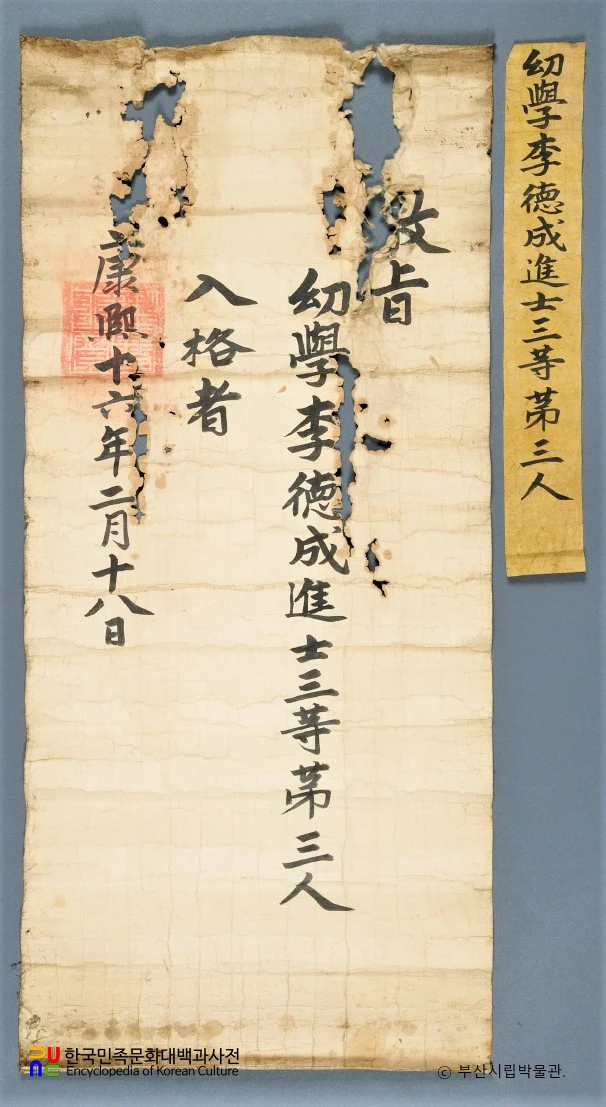 敎旨
幼學李徳成進士三等苐三人
入格者
康熙十六年二月十八日
幼學李徳成進士三等苐三人
한국민족문화대백과사전
Encyclopedia of Korean Culture
© 부산시립박물관.